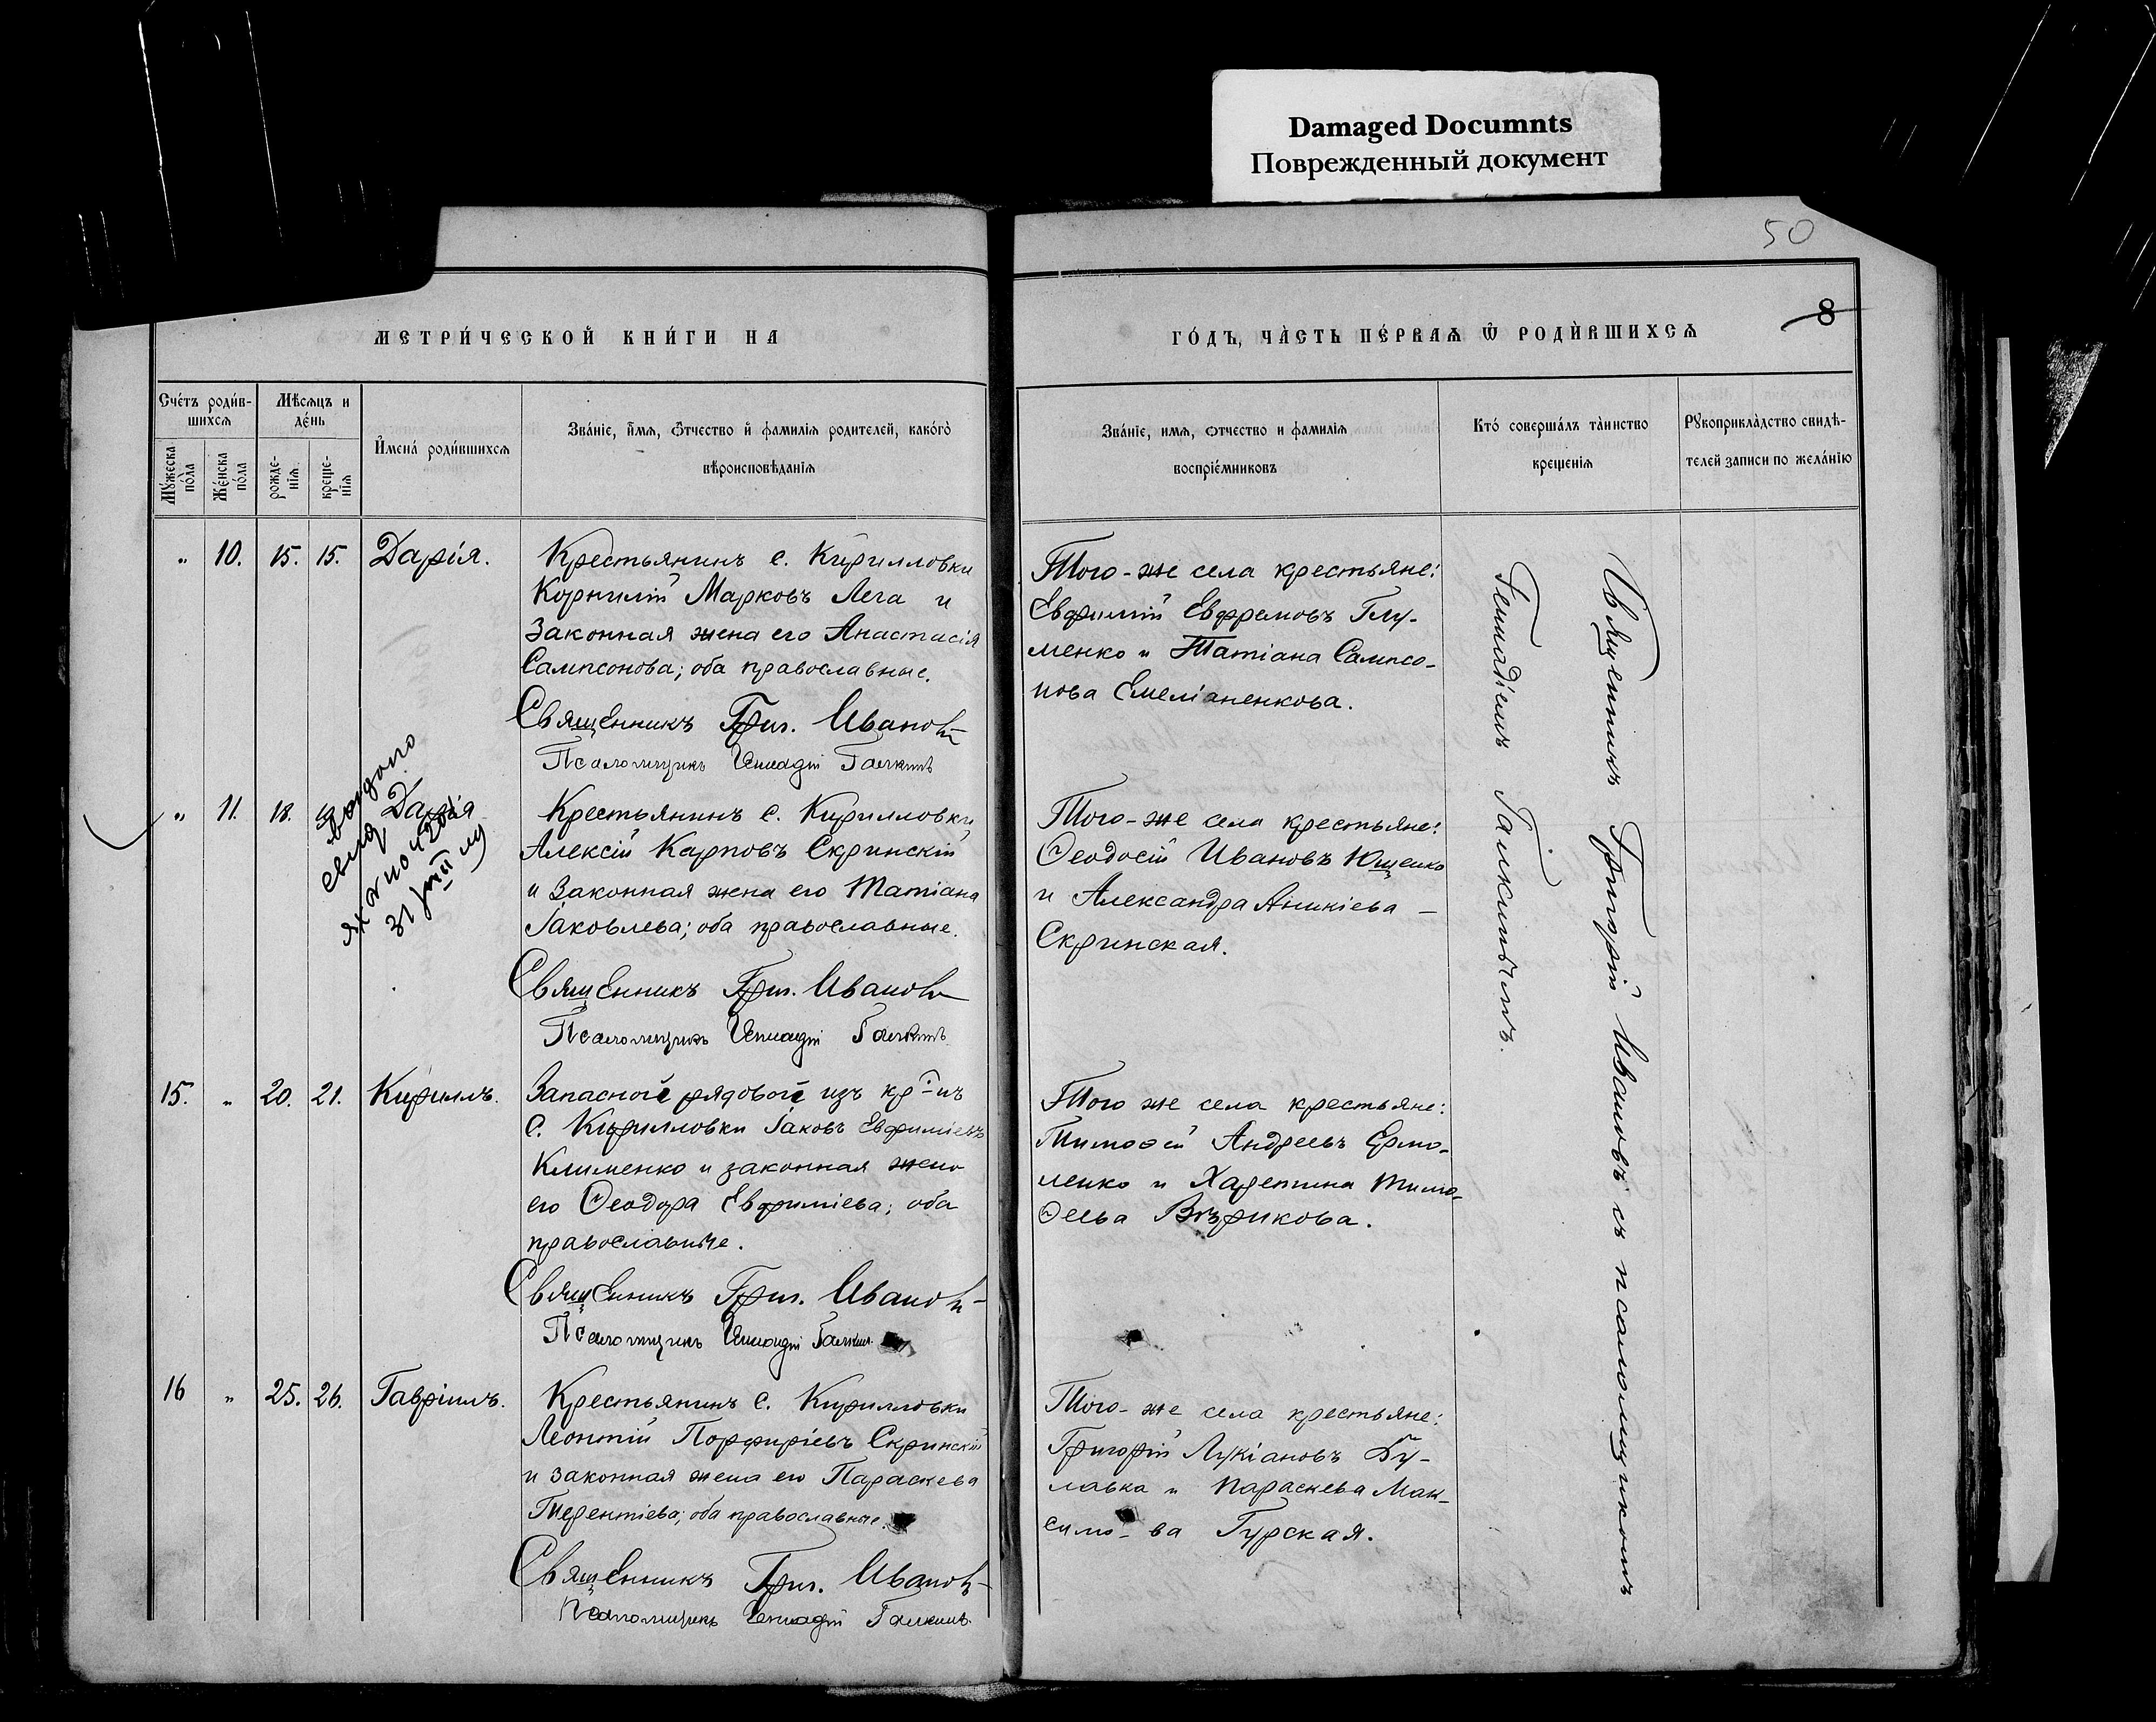 Damaged Documnts
Поврежденный документ
50
8
МЕТРИ́ЧЕСКОЙ КНИ́ГИ НА
ГО́ДЪ, ЧА̀СТЬ ПЕ́РВАѦ Ѿ РОДЍВШИХСѦ
Сче́тъ роди́в-
шихсѧ
Мѣ́сѧцъ и
де́нь
Му́жеска
по́ла
Же́нска
по́ла
рожде-
нїѧ
креще-
нїѧ
И҆мена̀ роди́вшихсѧ
Зва́нїе, и҆́мѧ, ѻ҆́тчество и҆ фамилїѧ родителей, како́гѡ
вѣроисповѣ́данїѧ
Зва́нїе, имѧ, ѻтчество и фамилїѧ
воспрїе́мниковъ
Кто́ соверша́лъ та̀инство
крещенїѧ
Рꙋкоприкла̀дство свидѣ-
телей записи по жела́нїю
" 10. 15. 15. Дарія.
Крестьянинъ с. Кирилловки
Корнилій Марковъ Лега и
законная жена его Анастасія
Сампсонова; оба православные.
Священникъ Григ. Ивановъ
Псаломщикъ Геннадій Галкинъ
Того-же села крестьяне:
Евфимій Ефремовъ Глу-
менко и Татіана Сампсо-
нова Емеліаненкова.
" 11. 18. Дарія
31
Крестьянинъ с. Кирилловки
Алексій Карповъ Скринскій
и законная жена его Татіана
Іаковлева; оба православные.
Священникъ Григ. Ивановъ
Псаломщикъ Геннадій Галкинъ
Того-же села крестьяне:
Ѳеодосій Ивановъ Ющенко
и Александра Аникіева –
Скринская.
15. " 20. 21. Кириллъ.
Запасной рядовой изъ кр-нъ
с. Кирилловки Іаковъ Евфиміевъ
Клименко и законная жена
его Ѳеодора Евфиміева; оба
православные.
Священникъ Григ. Ивановъ
Псаломщикъ Геннадій Галкинъ
Того же села крестьяне:
Тимоѳей Андреевъ Ермо-
ленко и Харетина Тимо-
ѳеева
16 " 25. 26. Гавріилъ.
Крестьянинъ с. Кирилловки
Леонтій Порфиріевъ Скринскій
и законная жена его Параскева
Терентіева; оба православные.
Священникъ Григ. Ивановъ
Псаломщикъ Геннадій Галкинъ
Того-же села крестьяне:
Григорій Лукіановъ Бу-
лавка и Параскева Мак-
симо-ва Гурская.
Священникъ Григорій Ивановъ съ псаломщикомъ
Геннадіемъ Галкинымъ.